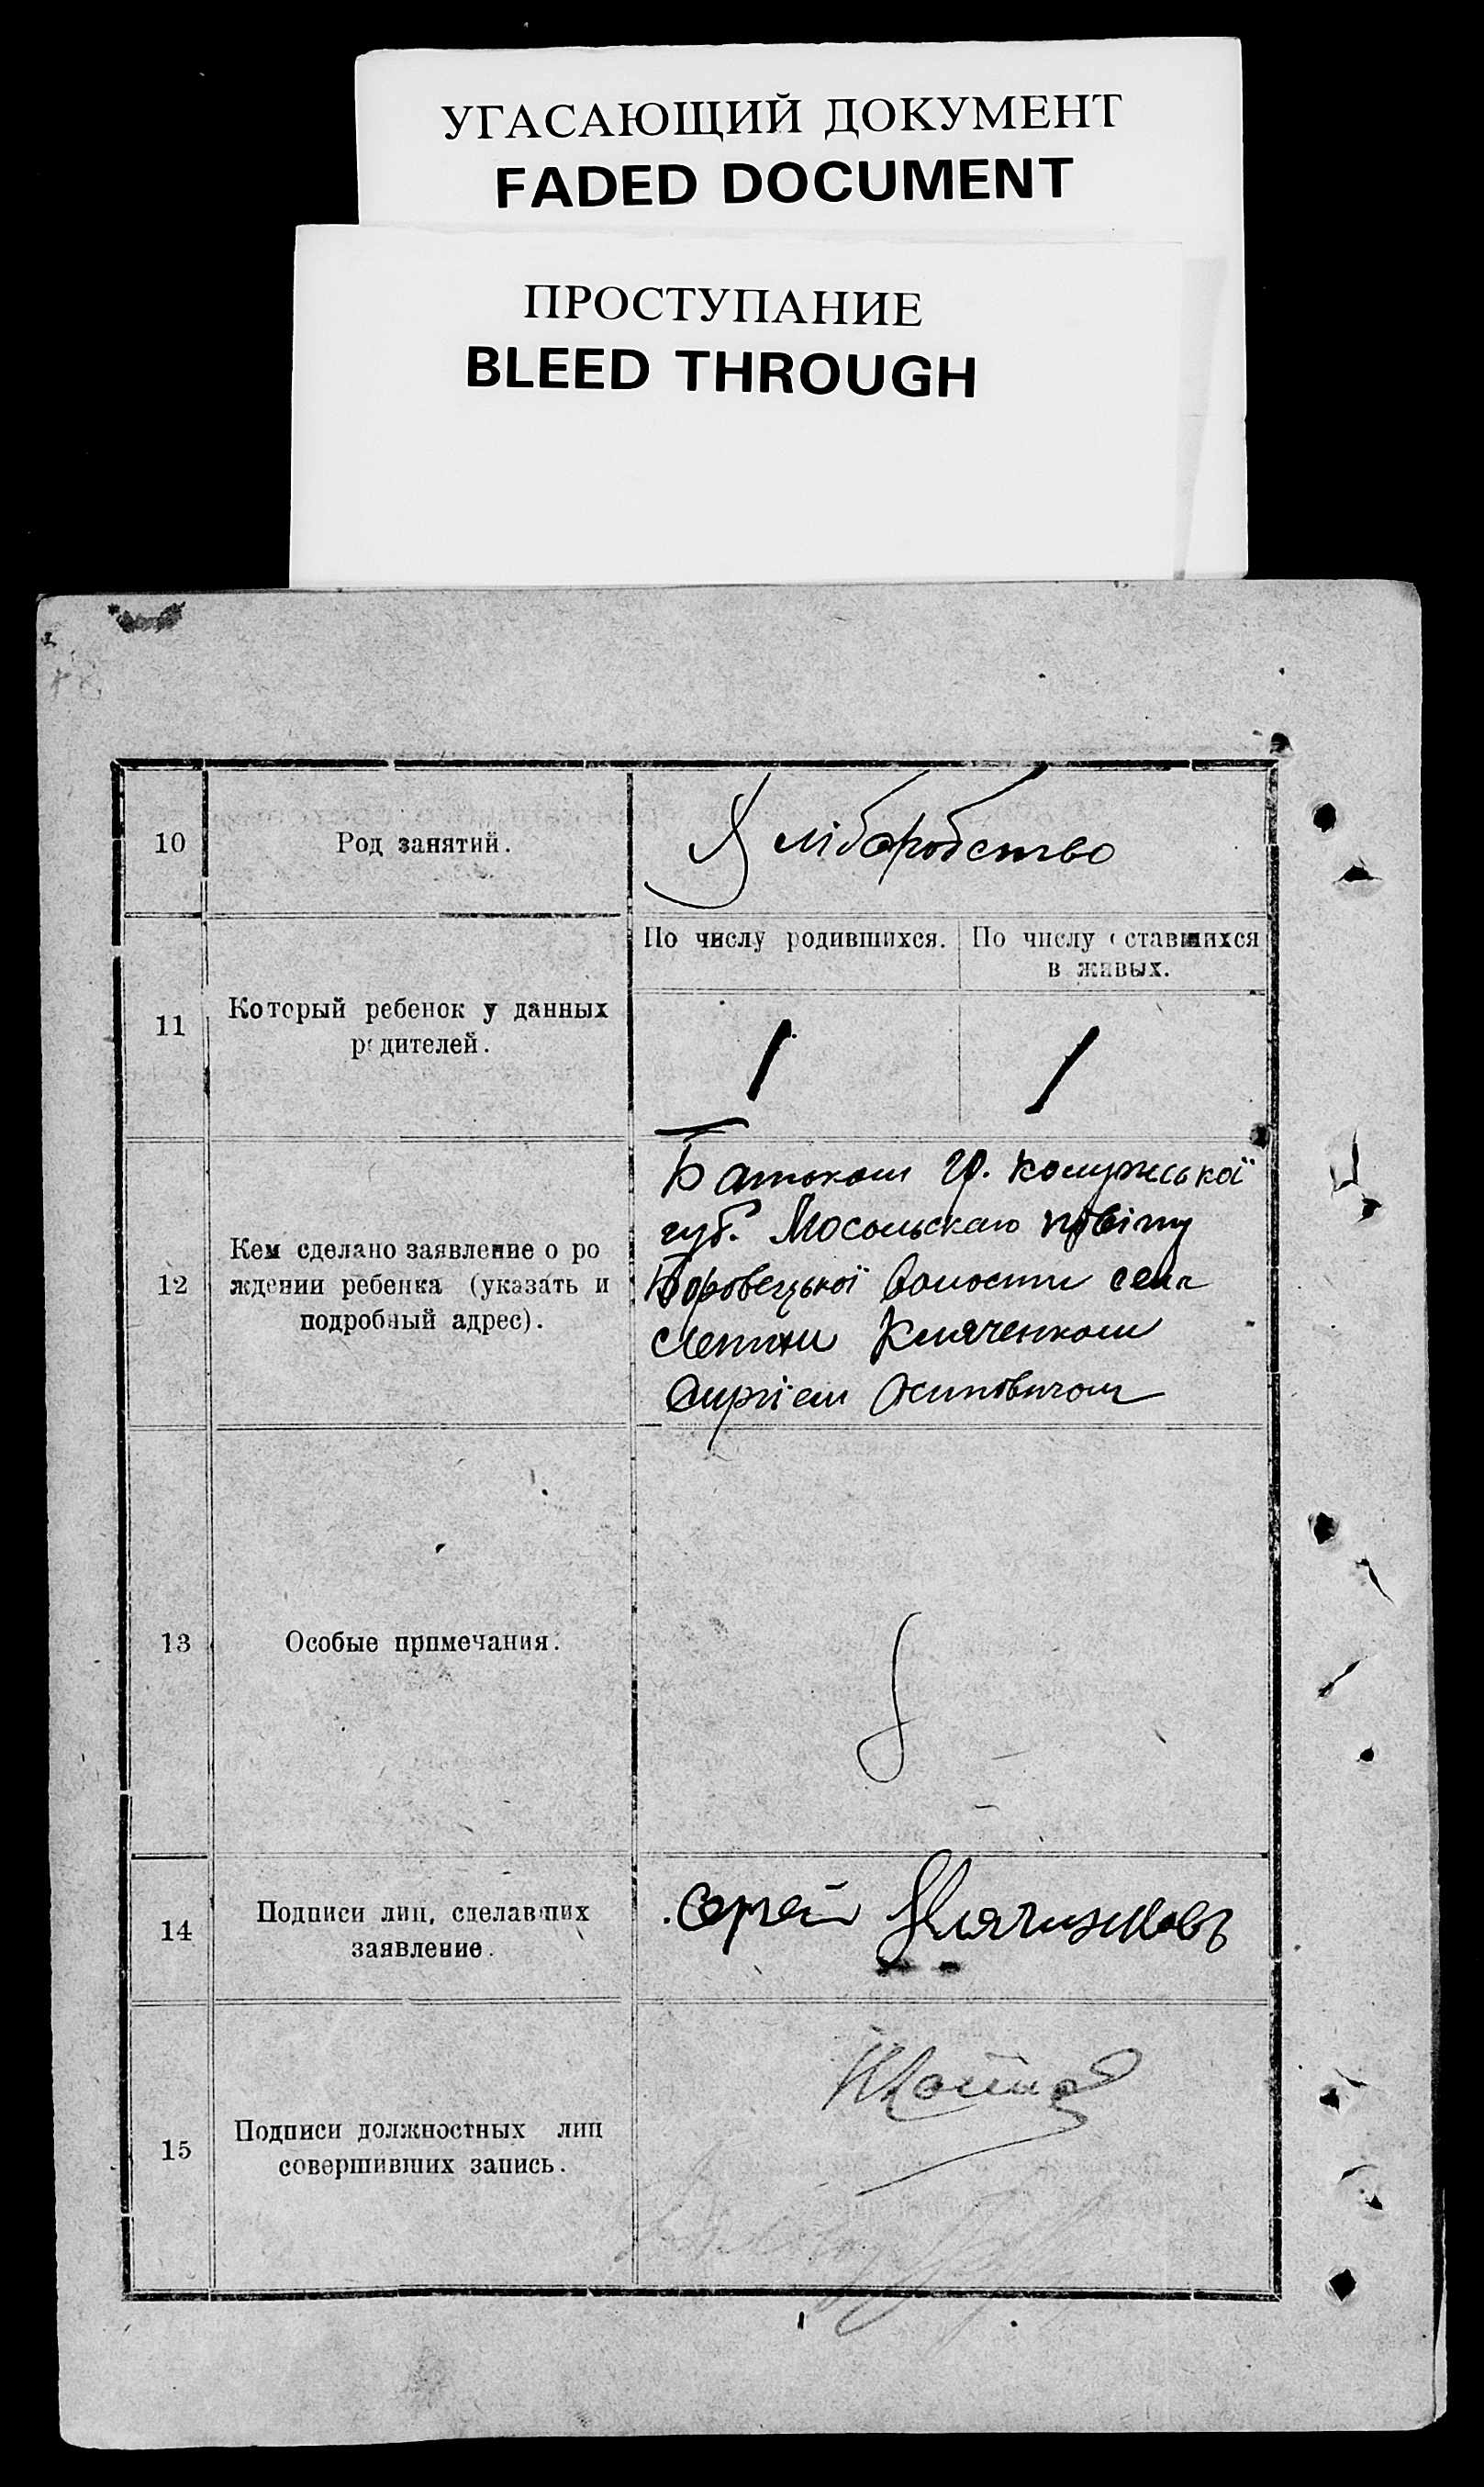 УГАСАЮЩИЙ ДОКУМЕНТ
FADED DOCUMENT
ПРОСТУПАНИЕ
BLEED THROUGH
10
Род занятий.
Хліборобство
11
Который ребенок у данных
родителей.
По числу родившихся.
По числу оставшихся
в живых.
1
1
12
Кем сделано заявление о ро
ждении ребенка (указать и
подробный адрес).
Батьком гр. Калужської
губ. Мосольскаго повіту
Боровецької волости села
Кляченком
Сиргієм Осиповичом
13
Особые примечания.
14
Подписи лиц, сделавших
заявление.
Сергей
15
Подписи должностных лиц
совершивших запись.